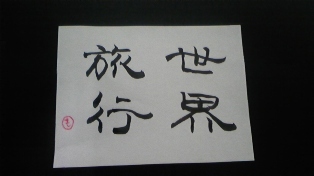 世界
旅行